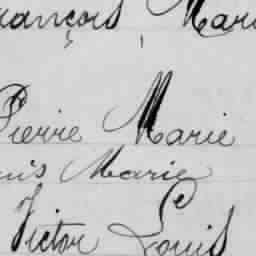 rançois Mari
Pierre Marie
uis Marie
Victor Louis